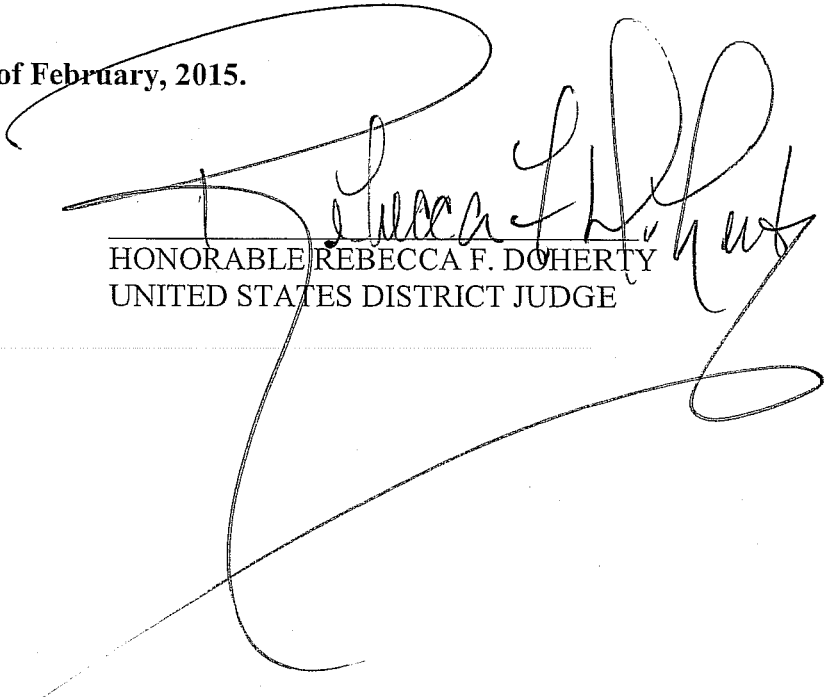 of February, 2015.
Rebecca F. Doherty
HONORABLE REBECCA F. DOHERTY
UNITED STATES DISTRICT JUDGE